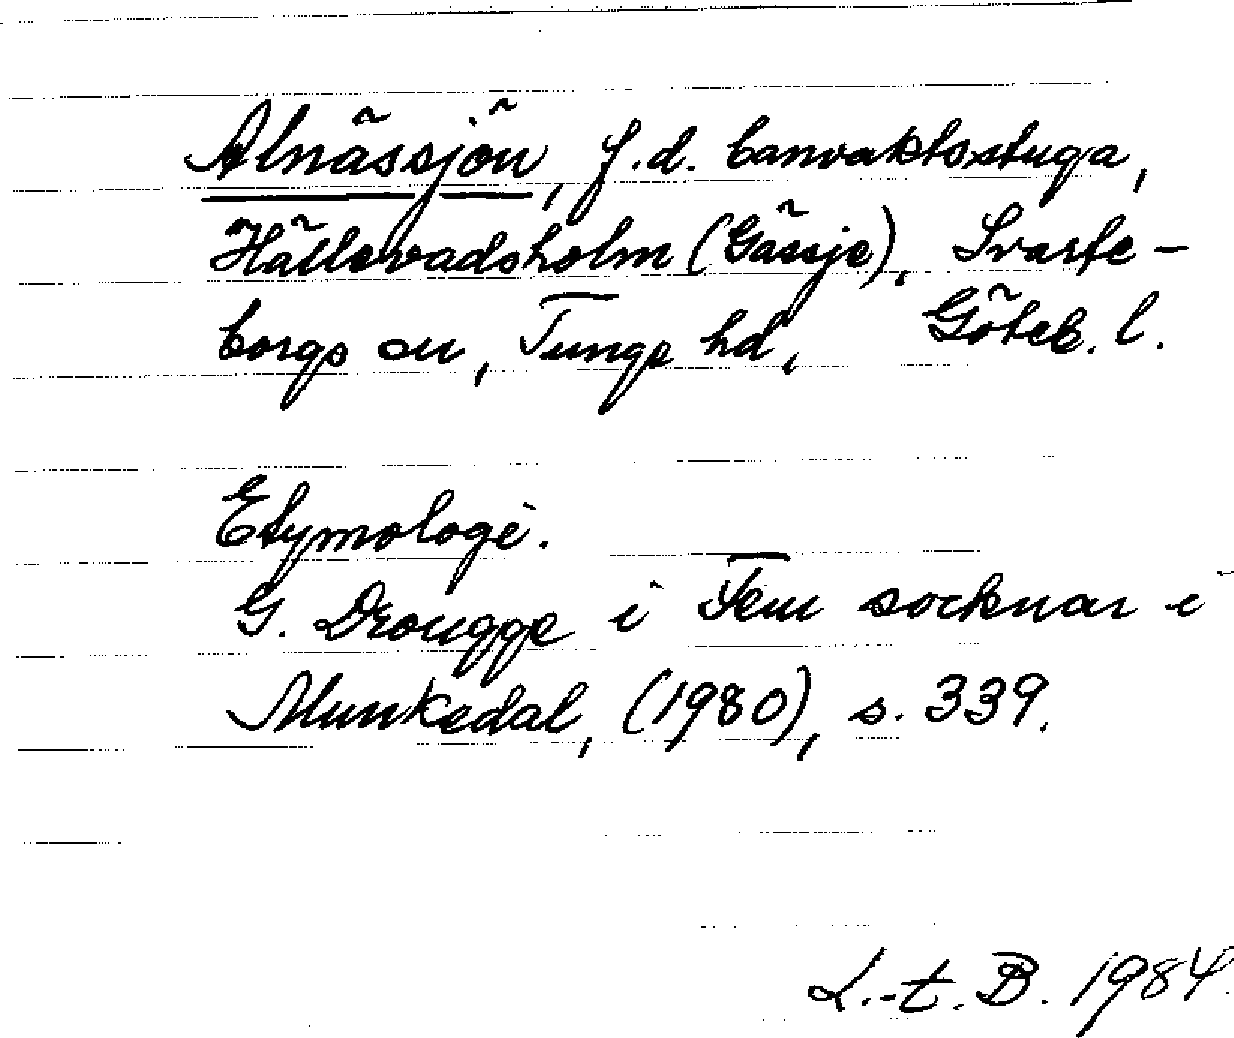 Alnässjön, f.d. banvaktsstuga,
Hällevadsholm (Gässje), Svarte-
borgs sn, Tunge hd, Göteb. l.
Etymologi.
G. Drougge i Fem socknar i
Munkedal, (1980), s. 339.
L.-t. B. 1984.